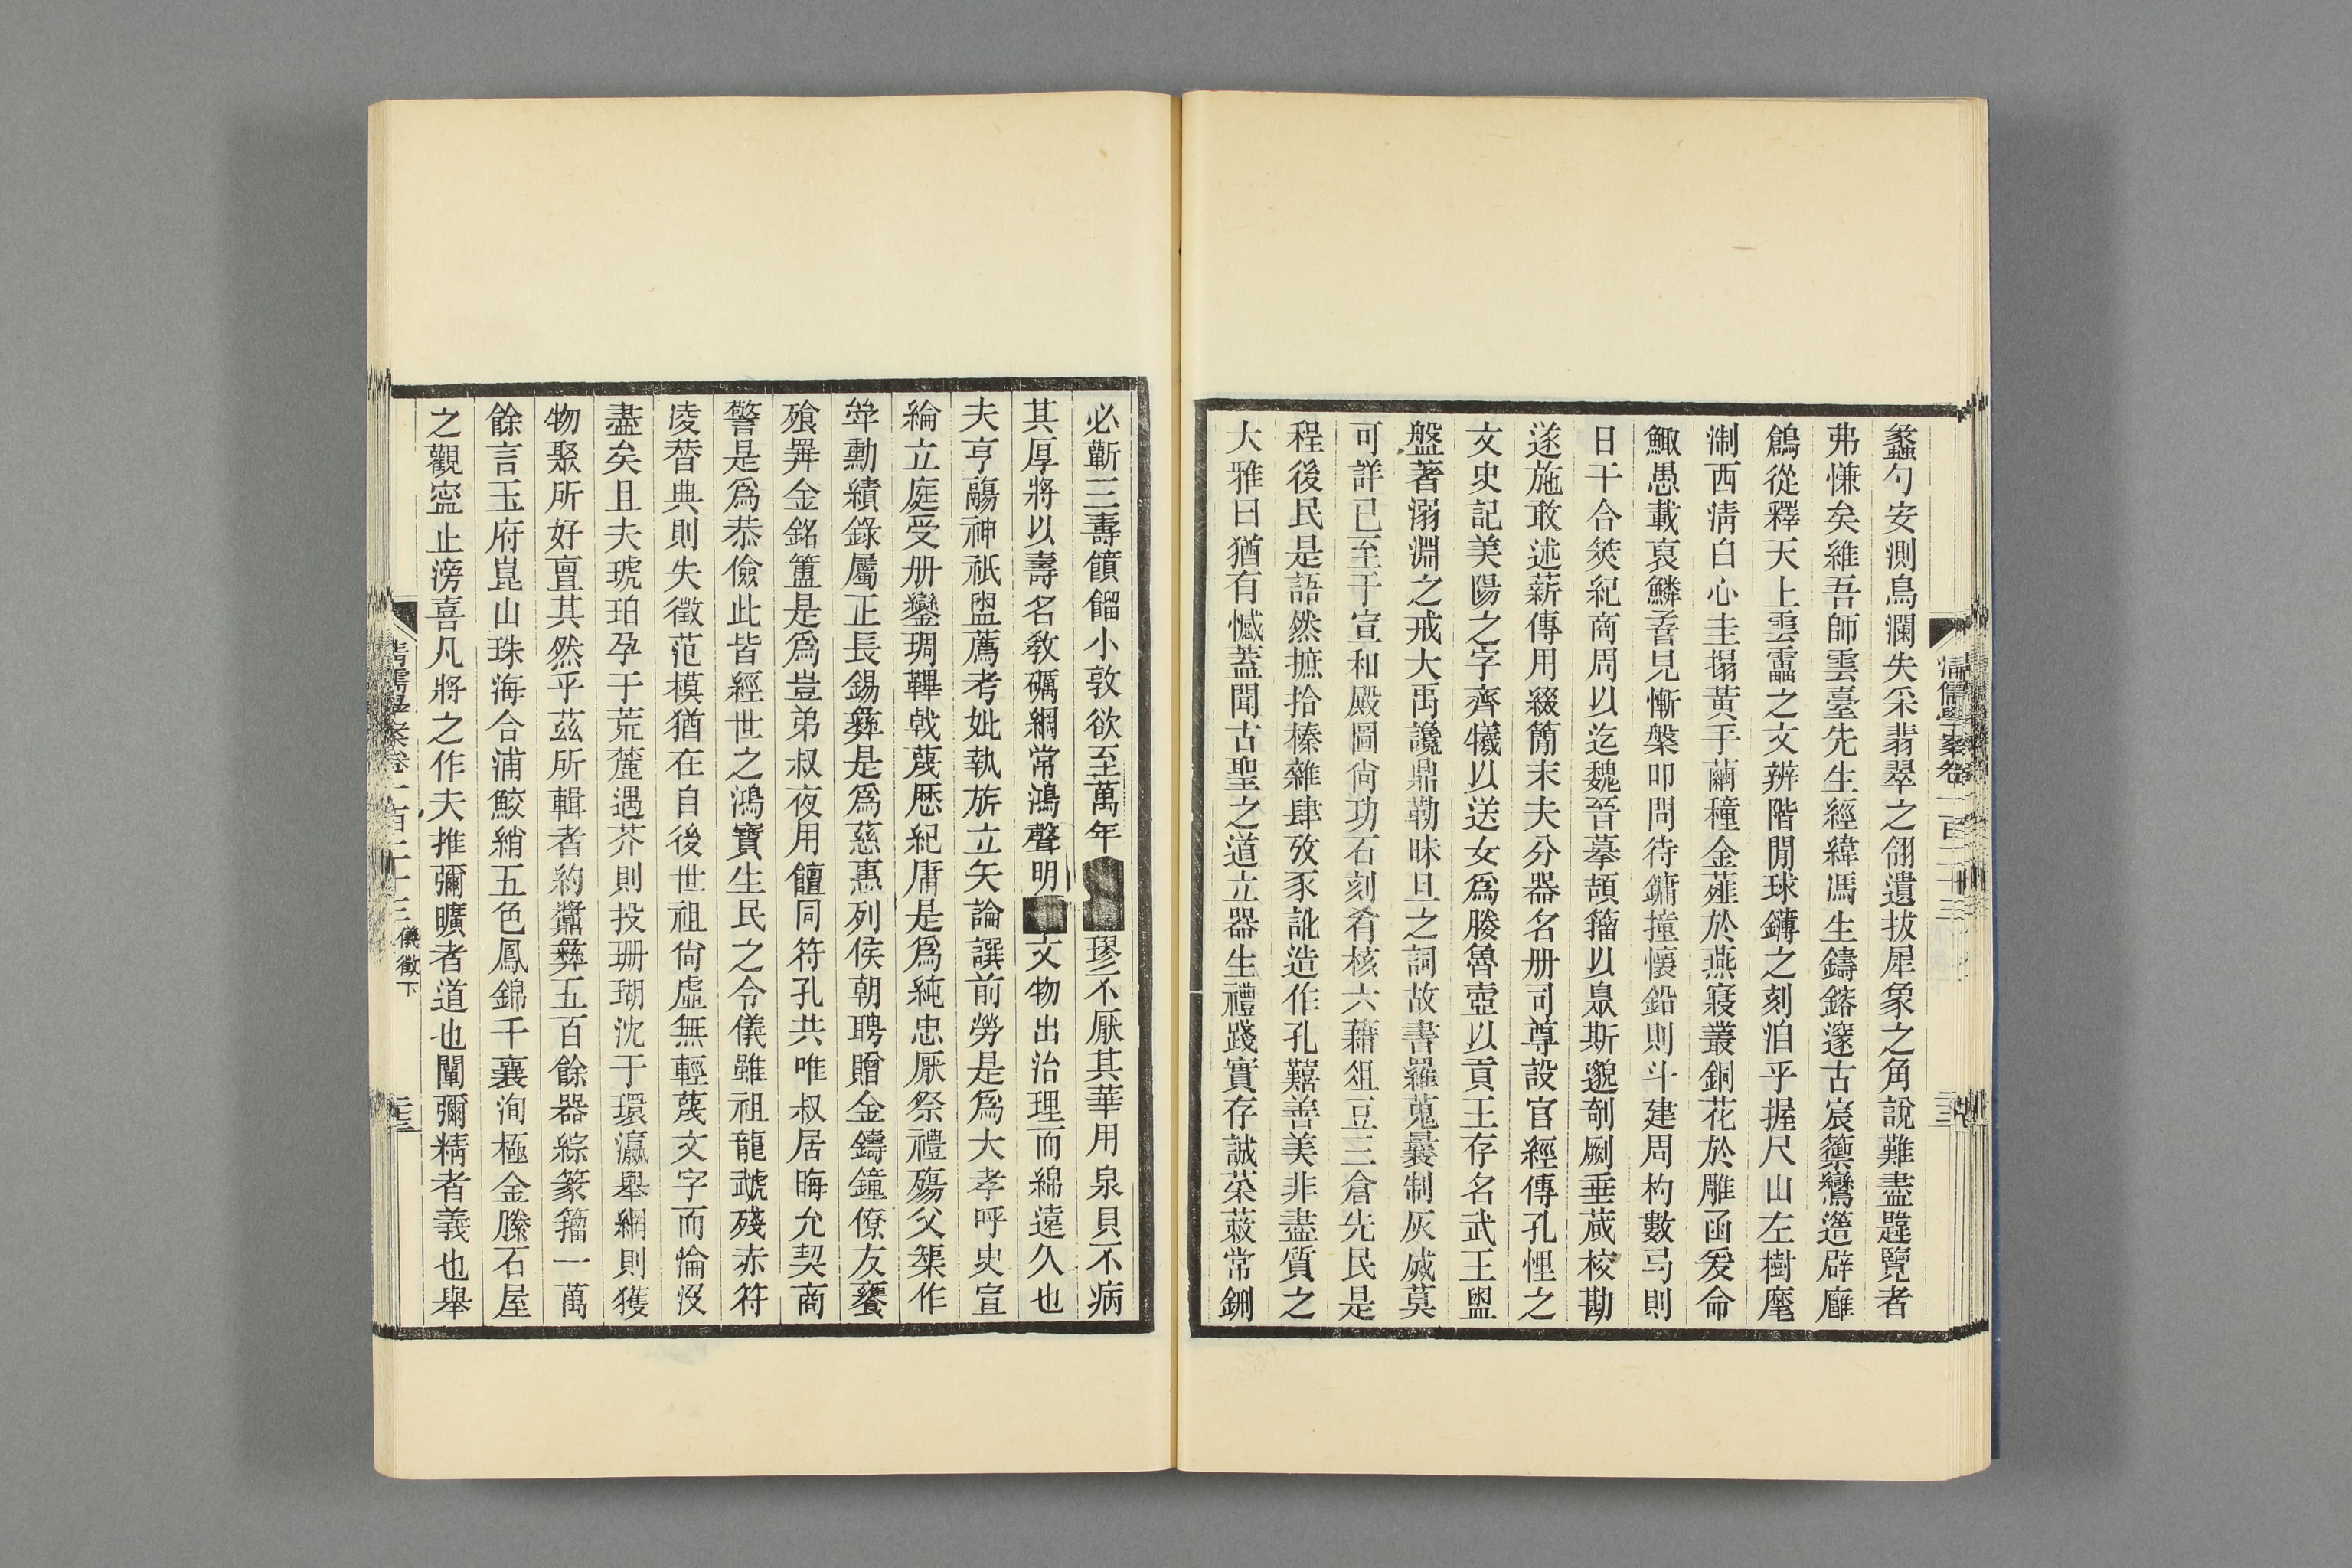 蠡勺安測鳥瀾失采翡翠之翎遺拔犀象之角說難盡韙覽者
弗慊矣維吾師雲臺先生經緯馮生鑄鎔邃古宸籞鸞簉辟廱
鶬從釋天上雲靁之文辨階閒球鎛之刻洎乎握尺山左樹麾
淛西淸白心圭搨黃手繭穜金蕹於燕寢叢銅花於雕函爰命
鯫愚載裒鱗孴見慚槃叩問待鏞撞懷鉛則斗建周杓數弓則
日干合筴紀商周以迄魏晉摹頡籒以臮斯邈剞劂垂蕆校勘
遂施敢述薪傳用綴簡末夫分器名册司尊設官經傳孔悝之
文史記美陽之字齊犧以送女爲媵魯壺以貢王存名武王盥
盤著溺淵之戒大禹讒鼎勒昧旦之詞故書羅蒐曩制灰烕莫
可詳已至于宣和殿圖尙功石刻肴核六藉俎豆三倉先民是
程後民是語然摭拾榛雜肆攷豕訛造作孔囏善美非盡質之
大雅曰猶有憾蓋聞古聖之道立器生禮踐實存誠菜蔌常鉶
必蘄三壽饙餾小敦欲至萬年璆不厭其華用泉貝不病
其厚將以壽名教礪綱常鴻聲明文物出治理而綿遠久也
夫亨鬺神祇盥薦考妣執旂立矢論譔前勞是爲大孝呼史宣
綸立庭受册鑾琱鞸戟蔑厤紀庸是爲純忠厭祭禮殤父榘作
斚勳績錄屬正長錫彝是爲慈惠列侯朝聘贈金鑄鐘僚友饔
飧羿金銘簠是爲豈弟叔夜用饘同符孔共唯叔居晦允契商
警是爲恭儉此皆經世之鴻寶生民之令儀雖祖龍虣殘赤符
凌朁典則失徵范模猶在自後世祖尙虛無輕蔑文字而惀沒
盡矣且夫琥珀孕于荒麓遇芥則投珊瑚沈于環瀛舉網則獲
物聚所好亶其然乎茲所輯者約鬻彝五百餘器綜篆籒一萬
餘言玉府崑山珠海合浦鮫綃五色鳳錦千襄洵極金縢石屋
之觀寍止滂喜凡將之作夫推彌曠者道也闡彌精者義也舉
淸儒學案卷一百二十三 儀徵下